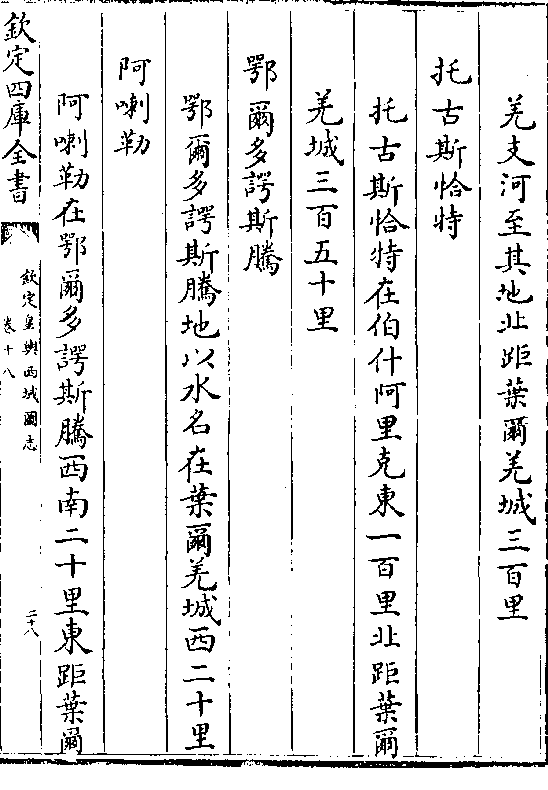 羌支河至其地北距葉爾羌城三百里
托古斯恰特
托古斯恰特在伯什阿里克東一百里北距葉爾
羌城三百五十里
鄂爾多諤斯騰
鄂爾多諤斯騰地以水名在葉爾羌城西二十里
阿喇勒
阿喇勒在鄂爾多諤斯騰西南二十里東距葉爾
欽定四庫全書
欽定皇輿西域圖志
卷十八
二十八